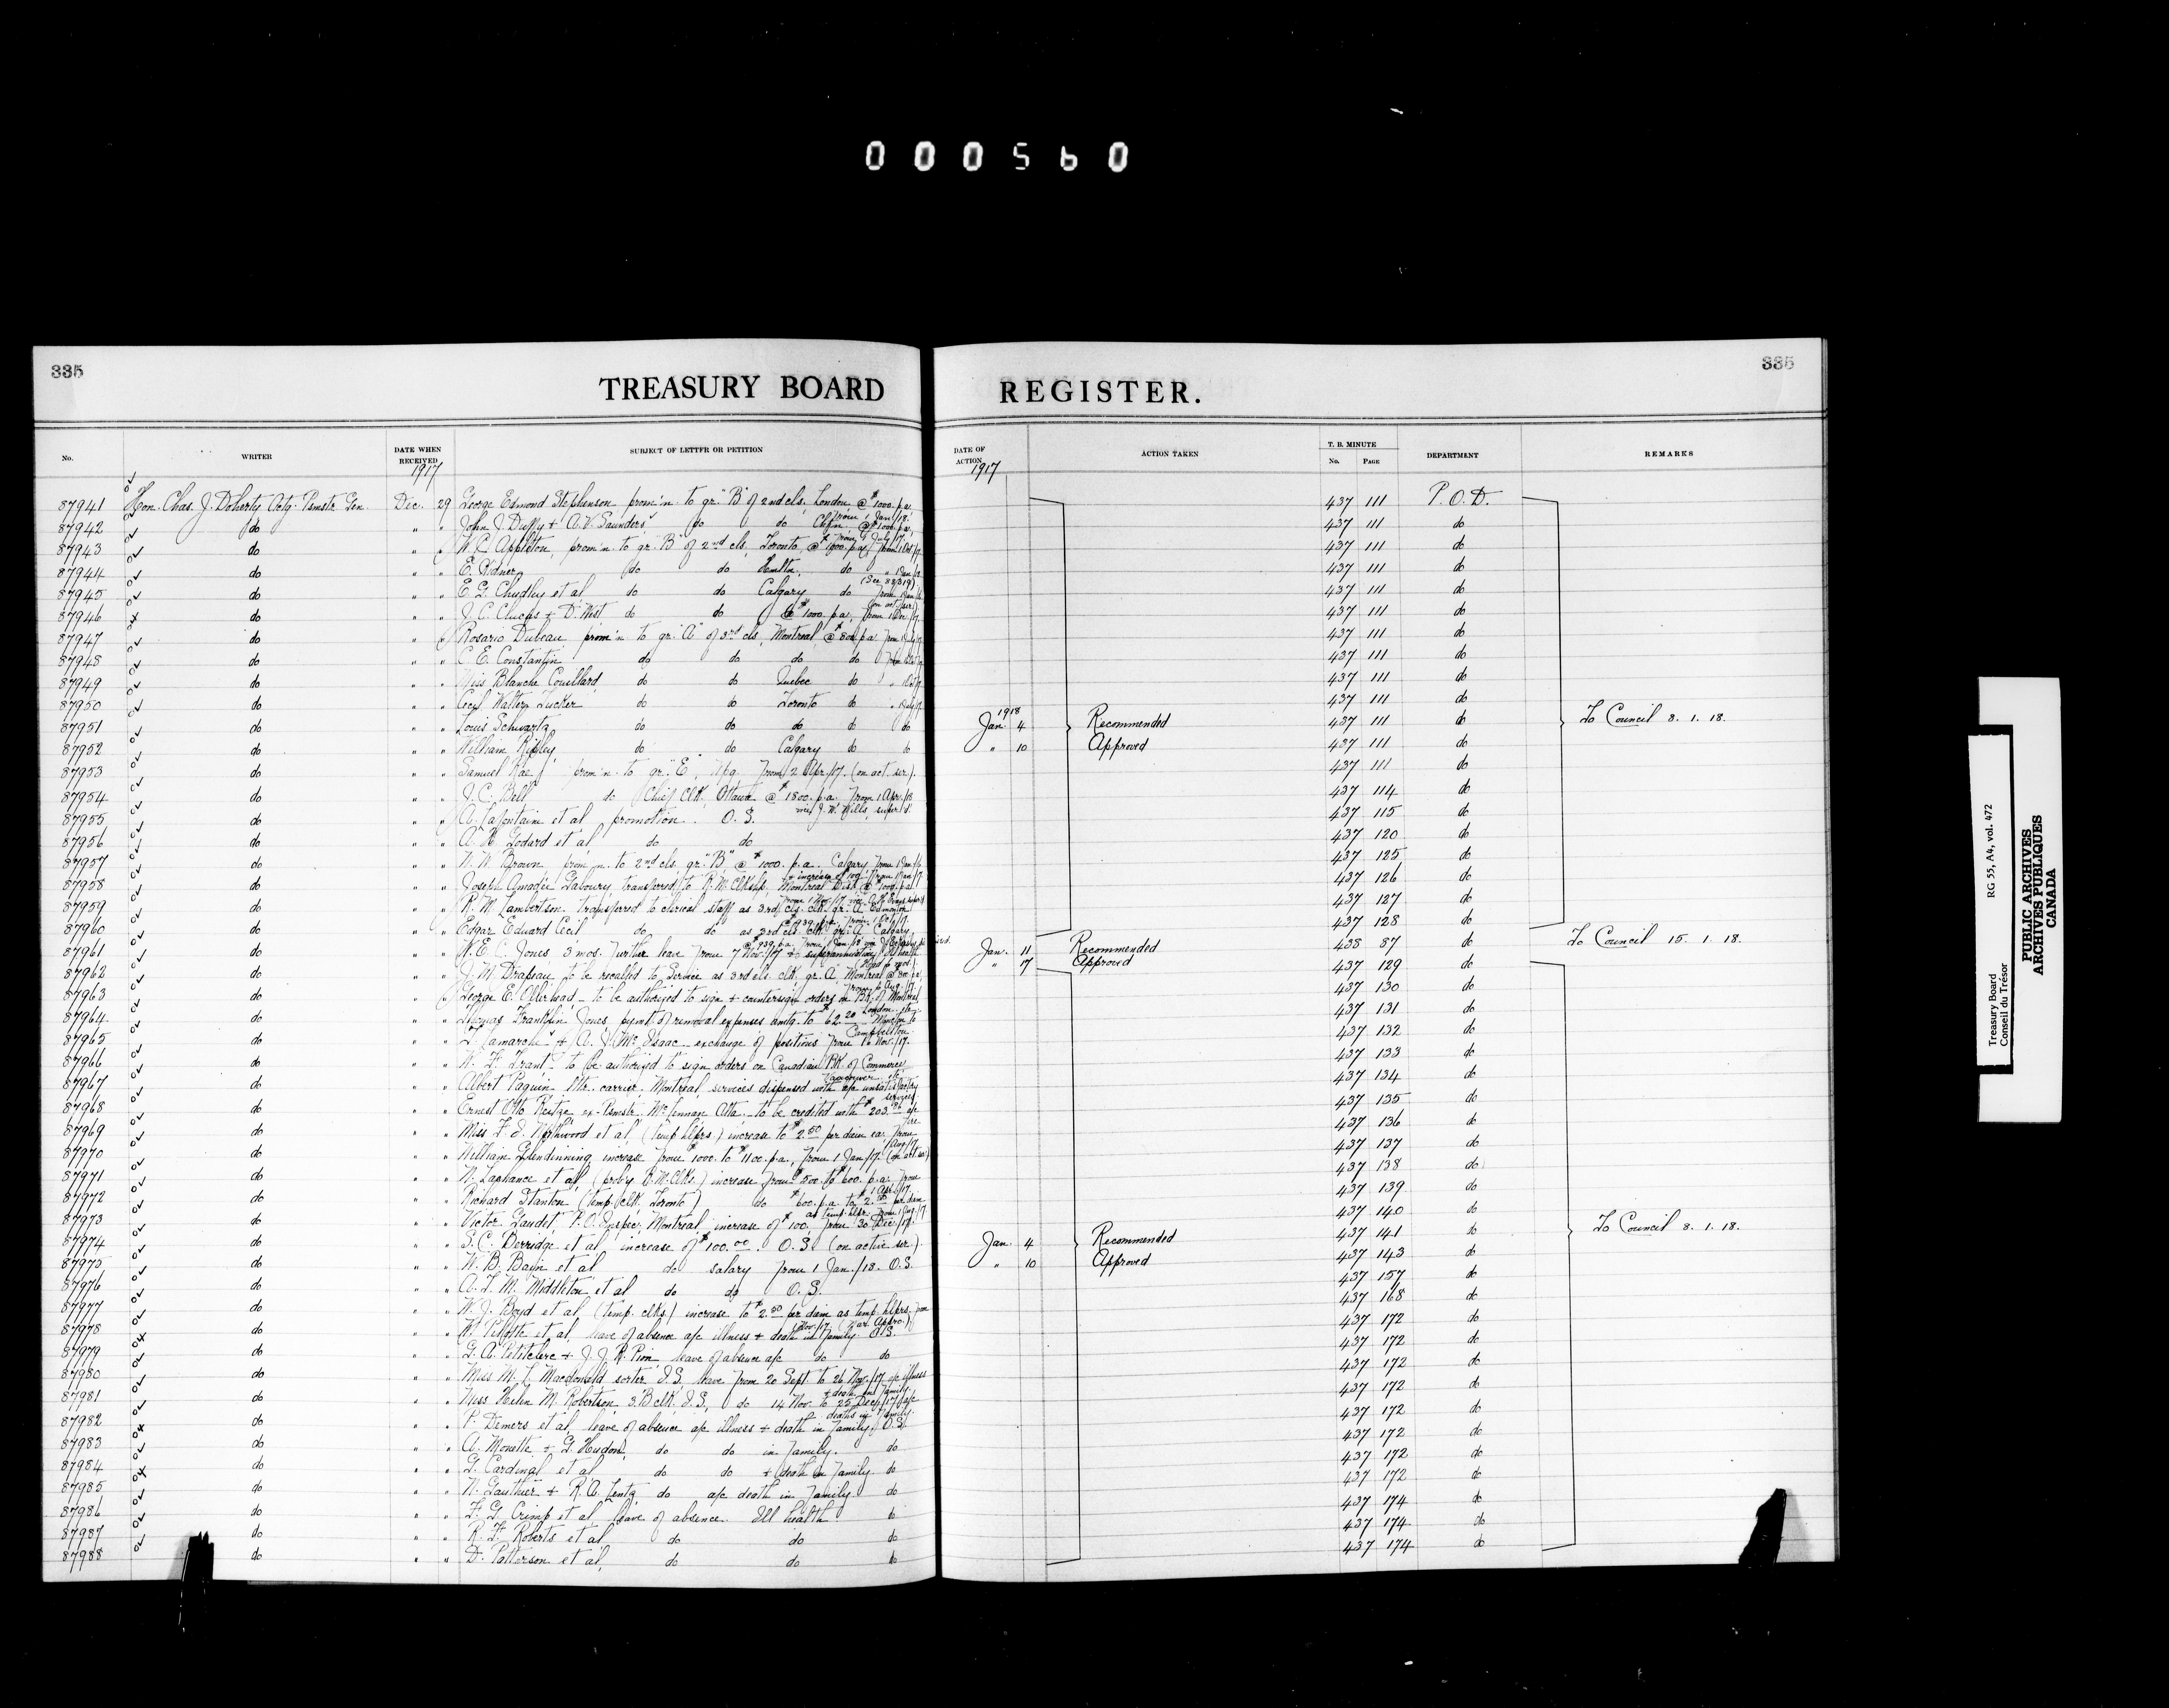 000560
335
TREASURY BOARD REGISTER.
335
No. WRITER DATE WHEN RECEIVED SUBJECT OF LETTER OR PETITION DATE OF ACTION ACTION TAKEN T. B. MINUTE No. PAGE DEPARTMENT REMARKS
1917 1917
87941 Hon. Chas. J. Doherty Actg. Psmstr. Gen. Dec. 29 George Edmond Stephenson prom'n. to gr. "B" of 2nd cls. London @ $1000. p.a. from 1 Jan/18. 437 111 P.O.D.
87942 do " " John J. Duffy + A. V. Saunders do do @ $1000. p.a. 437 111 do
87943 do " " W. C. Appleton, prom'n. to gr. "B" of 2nd cls. Toronto, @ $1000. p.a. 437 111 do
87944 do " " E. Kidner do do Hamltn. do 437 111 do
87945 do " " E. G. Chudley et al do do Calgary do 437 111 do
87946 do " " J. C. + D. West do do @ $1000. p.a. from 437 111 do
87947 do " " Rosario Dubeau prom'n to gr. "A" of 3rd cls. Montreal, @ $800 p.a. 437 111 do
87948 do " " C. E. Constantin do do do do 437 111 do
87949 do " " Miss Blanche Couillard do do Quebec do 437 111 do
87950 do " " Cecil Walter Tucker do do Toronto do 437 111 do
87951 do " " Louis Schwartz do do do do do 1918 Jan. 4 Recommended 437 111 do To Council 8. 1. 18.
87952 do " " William Ripley do do Calgary do do " 10 Approved 437 111 do
87953 do " " Samuel Rae prom'n. to gr. "E", Wpg. from 2 Apr./17. (on act. ser.) 437 111 do
87954 do " " J. C. Bell do Chief Clk. Ottawa @ $1800. p.a. from 1 Apr./18 vice J. W. Mills, super'd. 437 114 do
87955 do " " A. Lafontaine et al promotion. O. S. 437 115 do
87956 do " " A. R. Godard et al do do 437 120 do
87957 do " " N. W. Brown prom'n. to 2nd cls. gr. "B" @ $1000. p.a. Calgary from 1 Jan/ 437 125 do
87958 do " " Joseph Amadée Gaboury, transferred to R. M. Clkshp. Montreal Dist. @ $1000. p.a. 437 126 do
87959 do " " R. M. Lambertson. transferred to clerical staff as 3rd cls. clk. gr. "A" Edmonton 437 127 do
87960 do " " Edgar Eduard Cecil do do as 3rd cls. clk. gr. "A" Calgary 437 128 do
87961 do " " W. E. C. Jones 3 mos. further leave from 7 Nov./17 + superannuation Jan. 11 Recommended 438 87 do To Council 15. 1. 18.
87962 do " " J. M. Drapeau, to be recalled to Service as 3rd cls. clk. gr. "A" Montreal @ $800 p.a. " 17 Approved 437 129 do
87963 do " " George E. — to be authorized to sign + countersign orders on Bk. of Montreal London. 437 130 do
87964 do " " Thomas Franklin Jones, paymt. of removal expenses amtg. to $62.20 Moncton to Campbellton. 437 131 do
87965 do " " Lamarche + A. J. McIsaac — exchange of positions from 16 Nov./17. 437 132 do
87966 do " " W. F. Grant — to be authorized to sign orders on Canadian Bk. of Commerce Vancouver 437 133 do
87967 do " " Albert Paquin, lttr. carrier, Montreal, services dispensed with a/c unsatisfactory services. 437 134 do
87968 do " " Ernest Otto Reitze ex-Psmstr. McLennan Alta. — to be credited with $203. a/c fire 437 135 do
87969 do " " Miss F. E. Northwood et al, (temp. hlprs.) increase to $2.50 per diem ea. from 437 136 do
87970 do " " William Glendinning, increase from $1000. to $1100. p.a., from 1 Jan/17. (on act. ser.) 437 137 do
87971 do " " N. Laplance et al, (prob'y R. M. Clks.) increase from $500. to $600. p.a. from 1 Apr./17. 437 138 do
87972 do " " Richard Stanton (temp. clk. Toronto) do $600. p.a. to $2. per diem as temp. hlpr. from 1 Aug./17 437 139 do
87973 do " " Victor Gaudet, P. O. Inspec. Montreal increase of $100. from 30 Dec./17. 437 140 do
87974 do " " S. C. Berridge et al increase of $100.00. O. S. (on active ser.) Jan. 4 Recommended 437 141 do To Council 8. 1. 18.
87975 do " " W. B. Bain et al do salary from 1 Jan./18. O. S. " 10 Approved 437 143 do
87976 do " " A. L. M. Middleton et al do do O. S. 437 157 do
87977 do " " W. J. Boyd et al (temp. clks.) increase to $2.50 per diem as temp. hlprs. from 1 Nov./17. (War Appro.) 437 168 do
87978 do " " W. Pilotte et al, leave of absence a/c illness + death in family. O. S. 437 172 do
87979 do " " G. A. Petitclerc + J. J. R. Pion leave of absence a/c do do 437 172 do
87980 do " " Miss M. L. Macdonald sorter I. S. leave from 20 Sept. to 26 Nov./17 a/c illness + death in family. 437 172 do
87981 do " " Miss Helen M. Robertson, 3. B clk. I. S. do 14 Nov. to 25 Dec./17 a/c deaths in family. 437 172 do
87982 do " " P. Demers et al, leave of absence a/c illness + death in family. O. S. 437 172 do
87983 do " " A. Monette + G. Hudon, do do in family. do 437 172 do
87984 do " " G. Cardinal et al do do + death in family. do 437 172 do
87985 do " " N. Gauthier + R. A. Lentz do a/c death in family. do 437 172 do
87986 do " " F. G. Crimp et al, leave of absence. Ill health. do 437 174 do
87987 do " " R. F. Roberts et al do do do 437 174 do
87988 do " " D. Patterson et al, do do do 437 174 do
Treasury Board RG 55, A4, vol. 472
Conseil du Trésor
PUBLIC ARCHIVES
ARCHIVES PUBLIQUES
CANADA